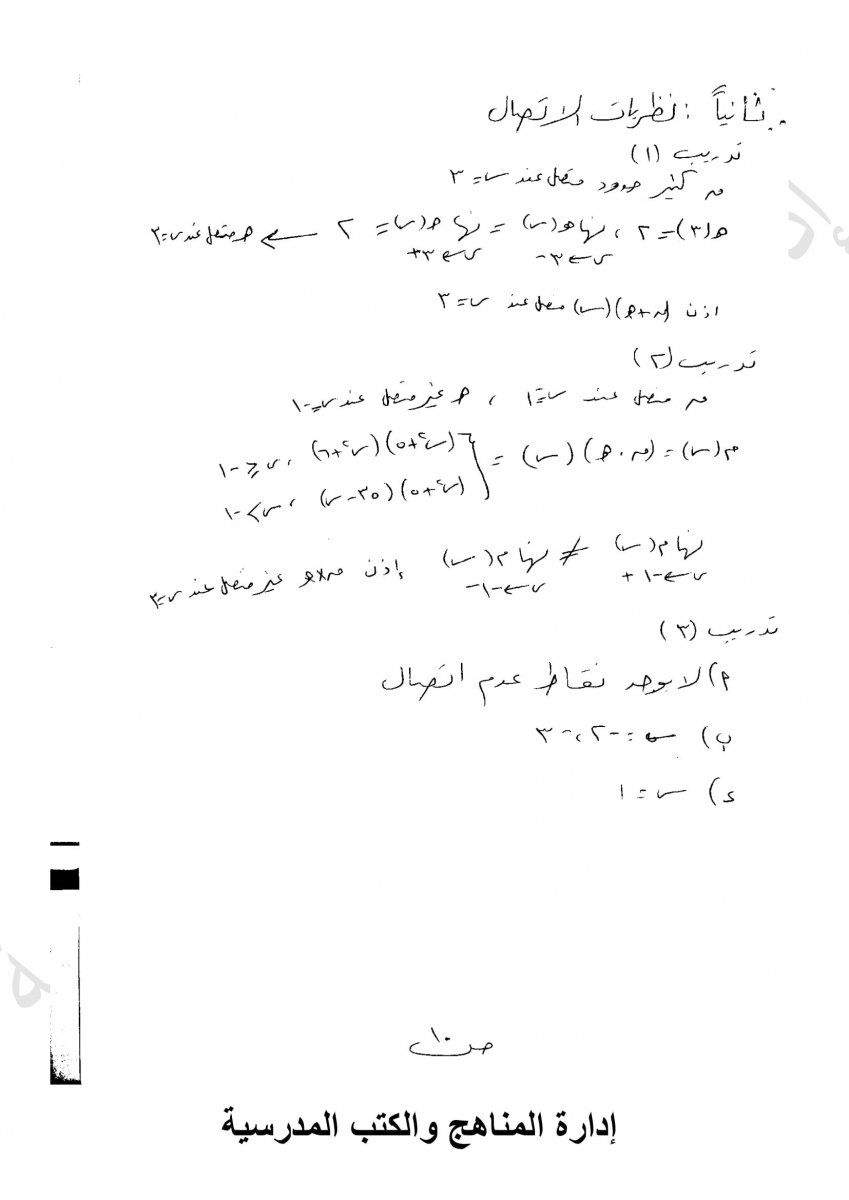 ثانياً : نظريات الاتصال
تدريب (١)
ق كثير حدود متصل عند س = ٣
هـ(٣) = ٢ ، نهــا هـ(س) = نهــا هـ(س) = ٢ ← هـ متصل عند س = ٣
س←٣- س←٣+
اذن (ق+هـ)(س) متصل عند س = ٣
تدريب (٢)
ق متصل عند س = -١ ، هـ غير متصل عند س = -١
م(س) = (ق . هـ)(س) = { (س٢+٥)(س٢+٦) ، س ≥ -١
(س٢+٥)(٣٥-س) ، س < -١
نهــا م(س) ≠ نهــا م(س) إذن ق×هـ غير متصل عند س =
س←-١+ س←-١-
تدريب (٣)
أ) لا يوجد نقاط عدم اتصال
ب) س = -٢ ، -٣
ء) س = ١
ص ١٠
إدارة المناهج والكتب المدرسية